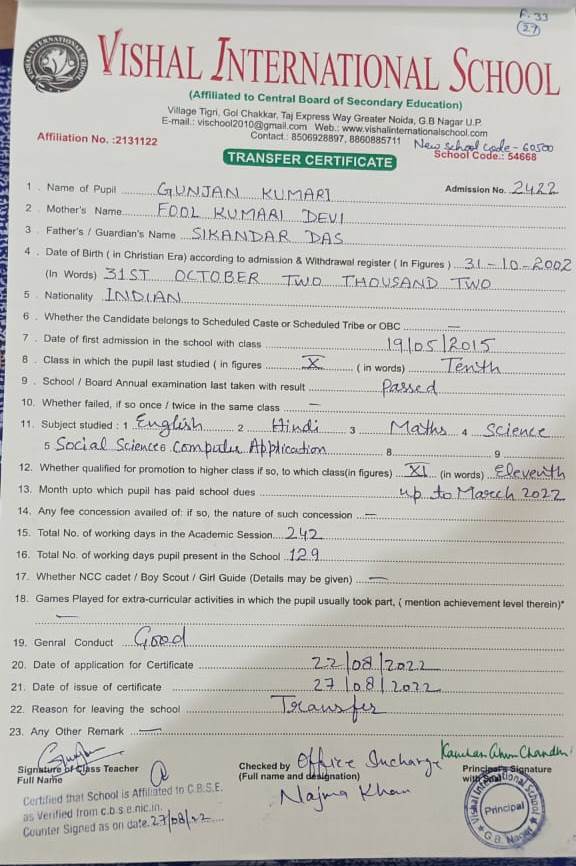 F. 33
(27)
VISHAL INTERNATIONAL SCHOOL
(Affiliated to Central Board of Secondary Education)
Village Tigri, Gol Chakkar, Taj Express Way Greater Noida, G.B Nagar U.P.
E-mail.: vischool2010@gmail.com Web.: www.vishalinternationalschool.com
Contact.: 8506928897, 8860885711 New school code - 60500
Affiliation No. :2131122 School Code.: 54668
TRANSFER CERTIFICATE
1 . Name of Pupil GUNJAN KUMARI Admission No. 2422
2 . Mother's Name FOOL KUMARI DEVI
3 . Father's / Guardian's Name SIKANDAR DAS
4 . Date of Birth ( in Christian Era) according to admission & Withdrawal register ( In Figures ) 31-10-2002
(In Words) 31ST OCTOBER TWO THOUSAND TWO
5 . Nationality INDIAN
6 . Whether the Candidate belongs to Scheduled Caste or Scheduled Tribe or OBC —
7 . Date of first admission in the school with class 19/05/2015
8 . Class in which the pupil last studied ( in figures X ( in words) Tenth
9 . School / Board Annual examination last taken with result Passed
10. Whether failed, if so once / twice in the same class —
11. Subject studied : 1 English 2 Hindi 3 Maths 4 Science
5 Social Science 6 Computer Application 8 9
12. Whether qualified for promotion to higher class if so, to which class(in figures) XI (in words) eleventh
13. Month upto which pupil has paid school dues up to March 2022
14. Any fee concession availed of: if so, the nature of such concession —
15. Total No. of working days in the Academic Session 242
16. Total No. of working days pupil present in the School 129
17. Whether NCC cadet / Boy Scout / Girl Guide (Details may be given) —
18. Games Played for extra-curricular activities in which the pupil usually took part, ( mention achievement level therein)*
—
19. Genral Conduct Good
20. Date of application for Certificate 22/08/2022
21. Date of issue of certificate 27/08/2022
22. Reason for leaving the school Transfer
23. Any Other Remark —
Signature of Class Teacher
Full Name
Checked by Office Incharge
(Full name and designation)
Najma Khan
Principal's Signature
with Seal
Certified that School is Affiliated to C.B.S.E.
as Verified from c.b.s.e.nic.in.
Counter Signed as on date. 27/08/22
Vishal International School
Principal
G.B. Nagar